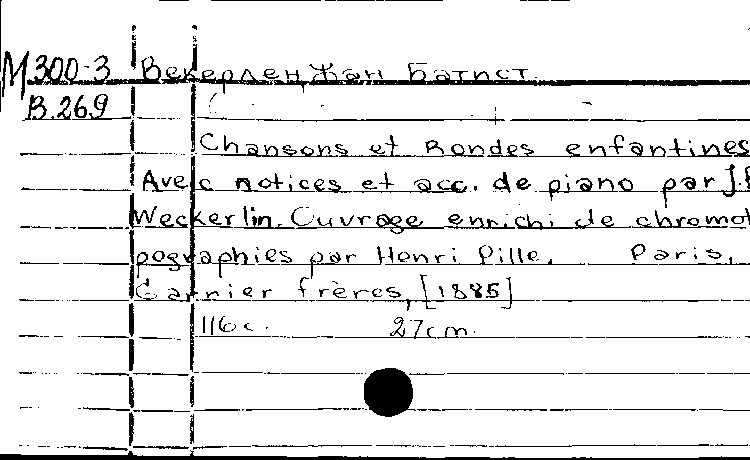 М300-3 Векерлен, Жан Батист.
В.269
Chansons et Rondes enfantines
Avec notices et acc. de piano par J.B
Weckerlin. Ouvrage enrichi de chromot
pographies par Henri Pille. Paris,
Garnier frères, [1885]
116 с. 27cm.